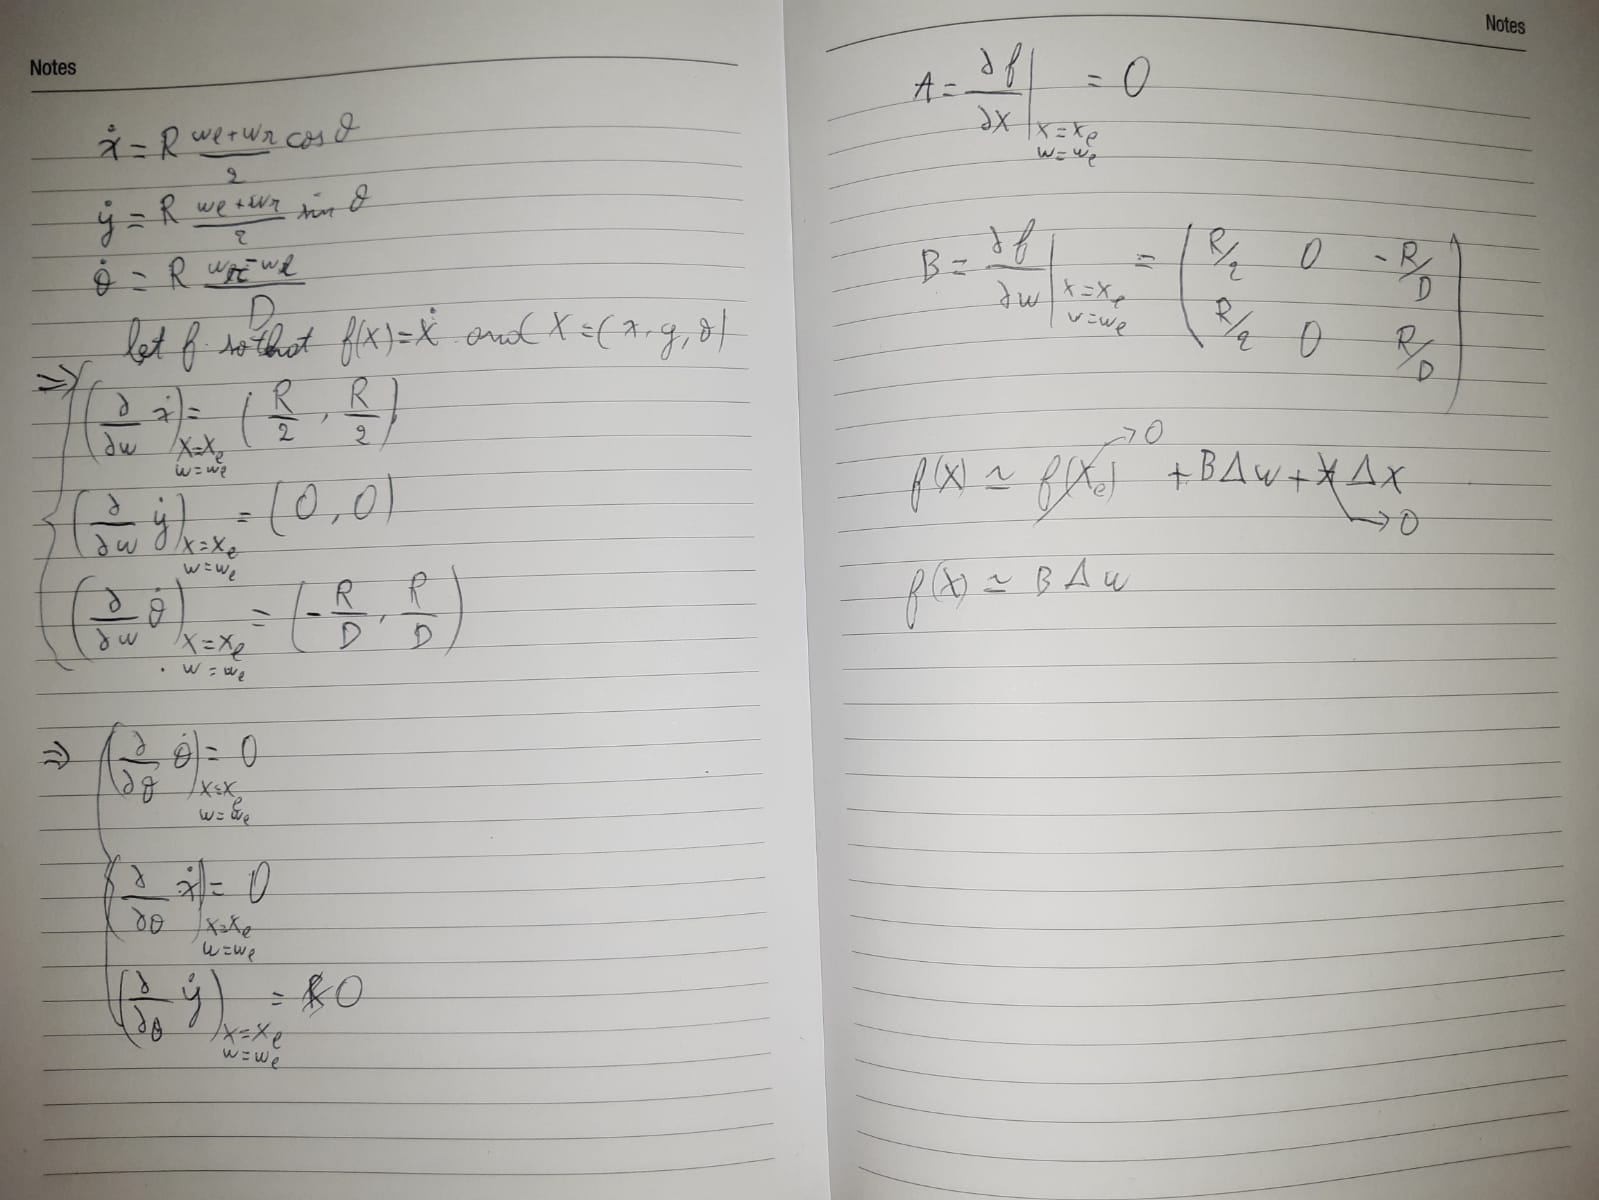 Notes
ẋ = R (we+wr)/2 cos θ
ẏ = R (we+wr)/2 sin θ
θ̇ = R (wr-wl)/D
let f so that f(X)=Ẋ and X=(x, y, θ)
=> (∂/∂w ẋ) x=xe w=we = (R/2, R/2)
(∂/∂w ẏ) x=xe w=we = (0, 0)
(∂/∂w θ̇) x=xe w=we = (-R/D, R/D)
=> (∂/∂θ θ̇) x=xe w=we = 0
(∂/∂θ ẋ) x=xe w=we = 0
(∂/∂θ ẏ) x=xe w=we = 0
Notes
A = ∂f/∂x | x=xe w=we = 0
B = ∂f/∂w | x=xe v=we = ( R/2 0 -R/D
R/2 0 R/D )
f(X) ≃ f(Xe) →0 + BΔw + X Δx →0
f(X) ≃ B Δ w